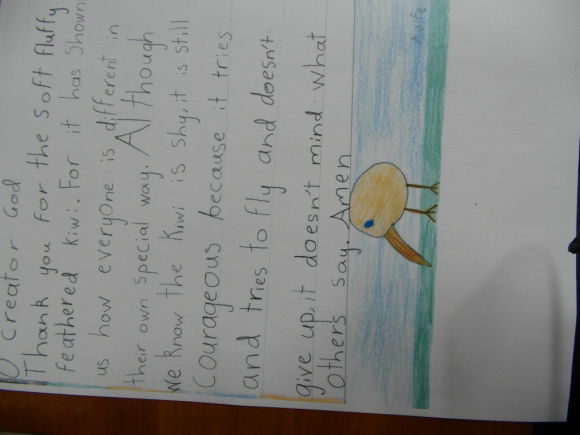 O Creator God
Thank you for the soft fluffy
feathered kiwi. For it has shown
us how everyone is different in
their own special way. Although
we know the kiwi is shy, it is still
courageous because it tries
and tries to fly and doesn't
give up, it doesn't mind what
others say. Amen